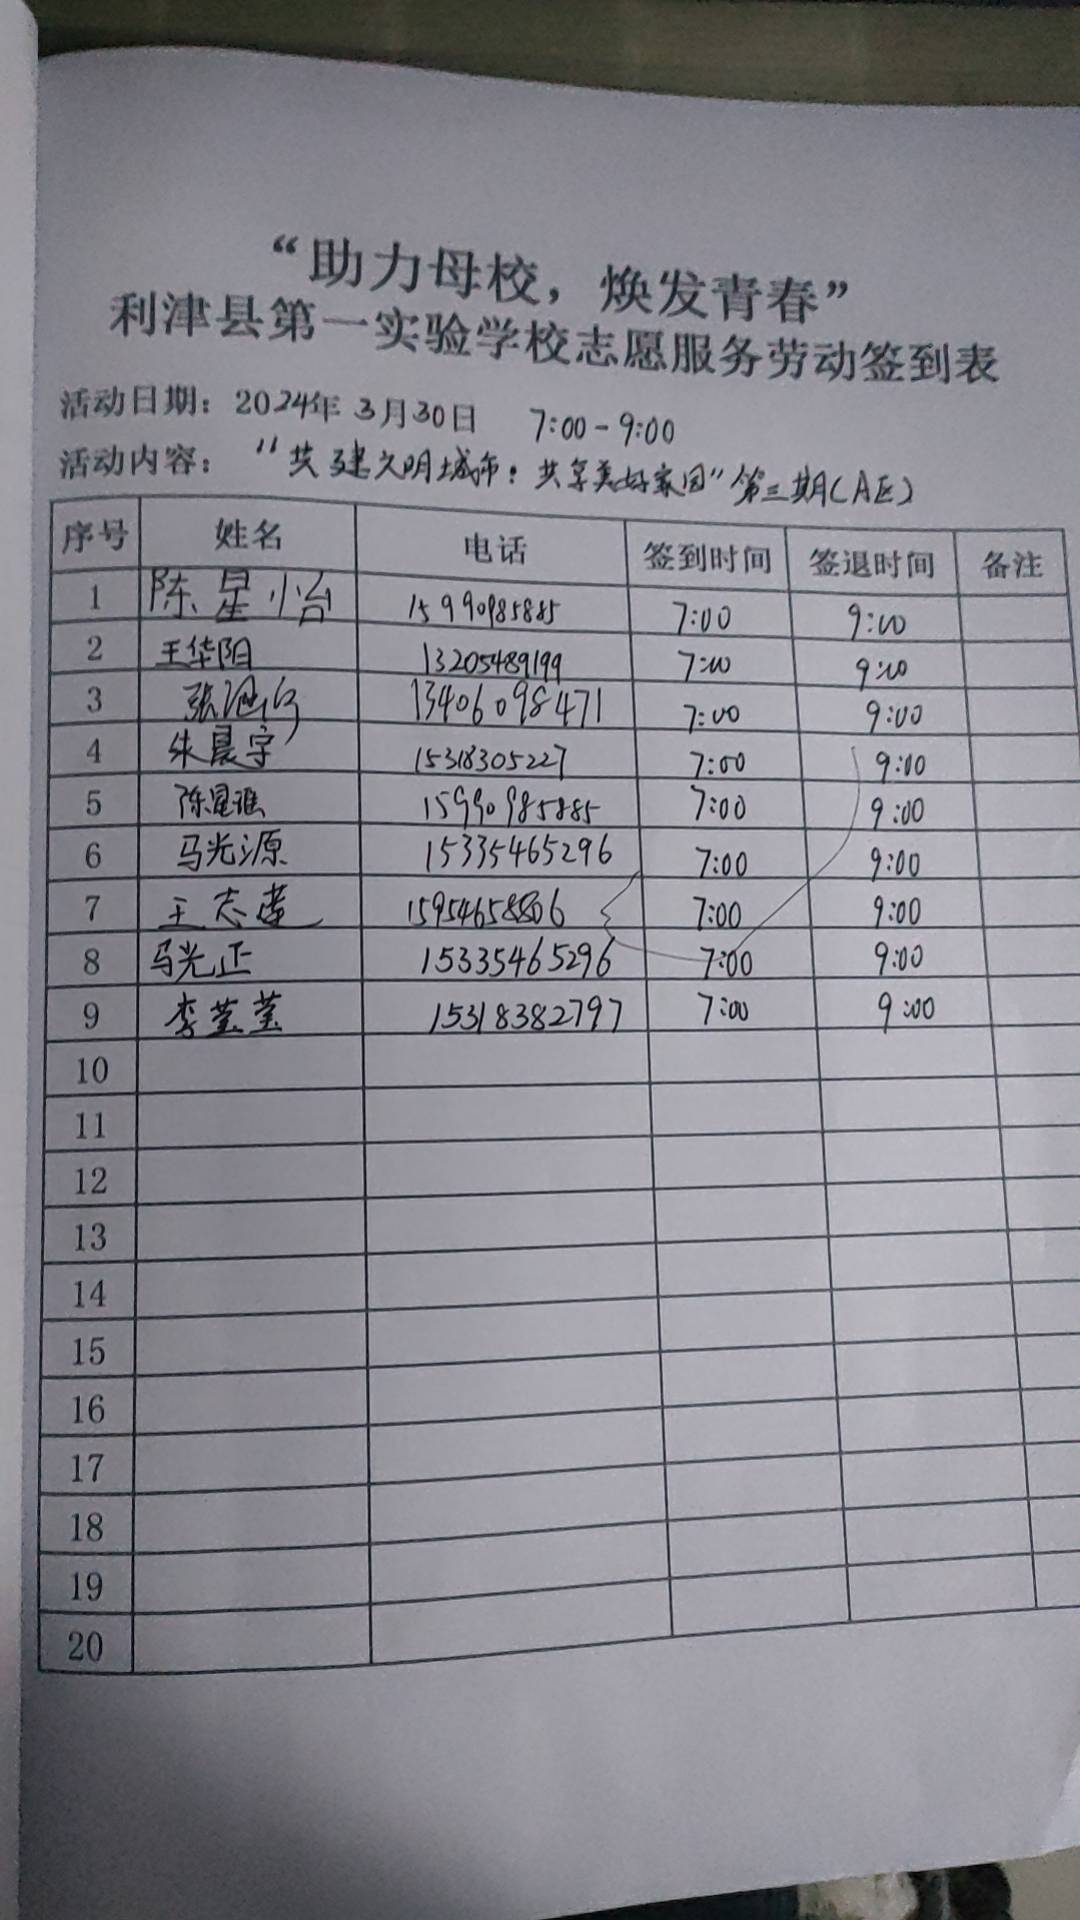 “助力母校，焕发青春”
利津县第一实验学校志愿服务劳动签到表
活动日期：2024年 3月30日 7:00-9:00
活动内容：“共建文明城市：共享美好家园”第三期(A区)
序号 姓名 电话 签到时间 签退时间 备注
1 陈星怡 15990985885 7:00 9:00
2 王华阳 13205489199 7:00 9:00
3 张 13406098471 7:00 9:00
4 朱晨宇 15318305227 7:00 9:00
5 陈星 15990985885 7:00 9:00
6 马光源 15335465296 7:00 9:00
7 王志 15954658806 7:00 9:00
8 马光正 15335465296 7:00 9:00
9 李莹莹 15318382797 7:00 9:00
10
11
12
13
14
15
16
17
18
19
20